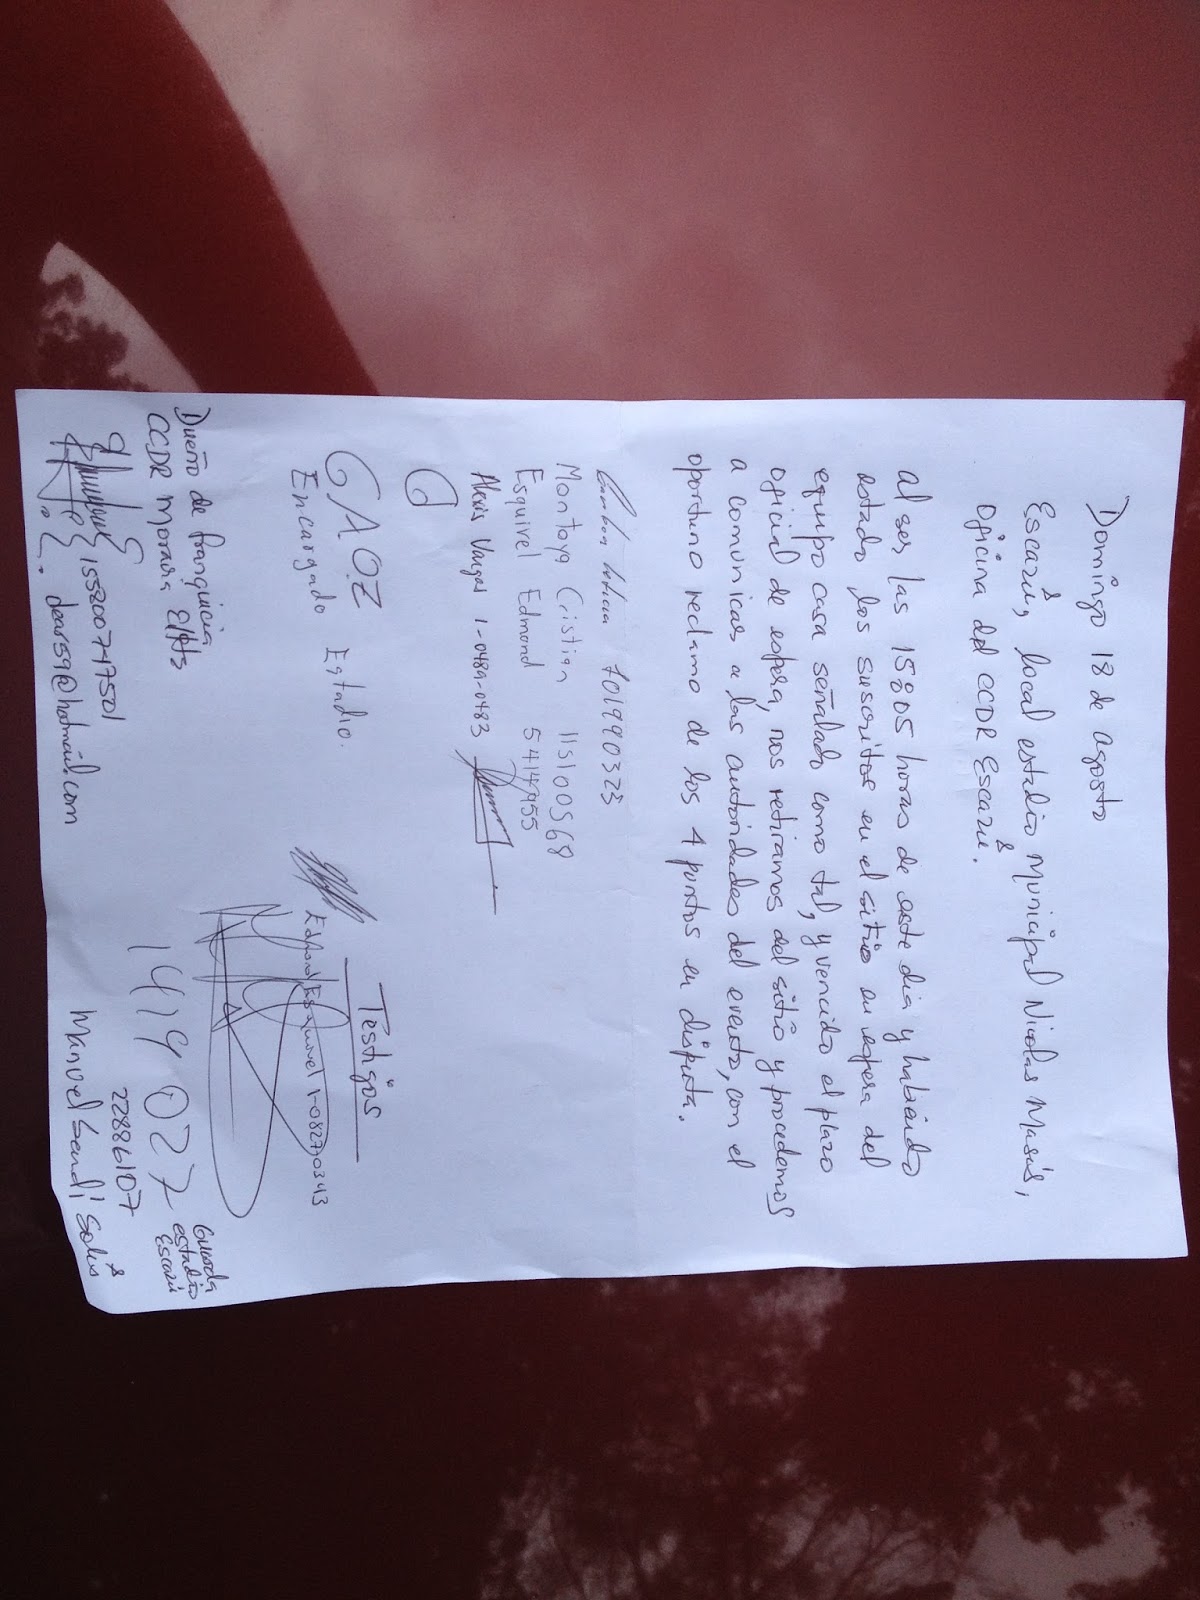 Domingo 18 de agosto
Escazú, local estadio Municipal Nicolas Masís,
oficina del CCDR Escazú.
al ser las 15:05 horas de este día y habiendo
estado los suscritos en el sitio en espera del
equipo casa señalado como tal, y vencido el plazo
oficial de espera, nos retiramos del sitio y procedemos
a comunicar a las autoridades del evento, con el
oportuno reclamo de los 4 puntos en disputa.
701990323
Montoya Cristian 115100568
Esquivel Edmond 5414955
Alexis Vargas 1-0489-0483
Encargado Estadio.
Testigos
Edmond Esquivel 1-0827-0343
Dueño de franquicia
CCDR Morara
155800717501
dears59@hotmail.com
1419027
Guarda
estadio
Escazú
22886107
Manuel Sandí Solís